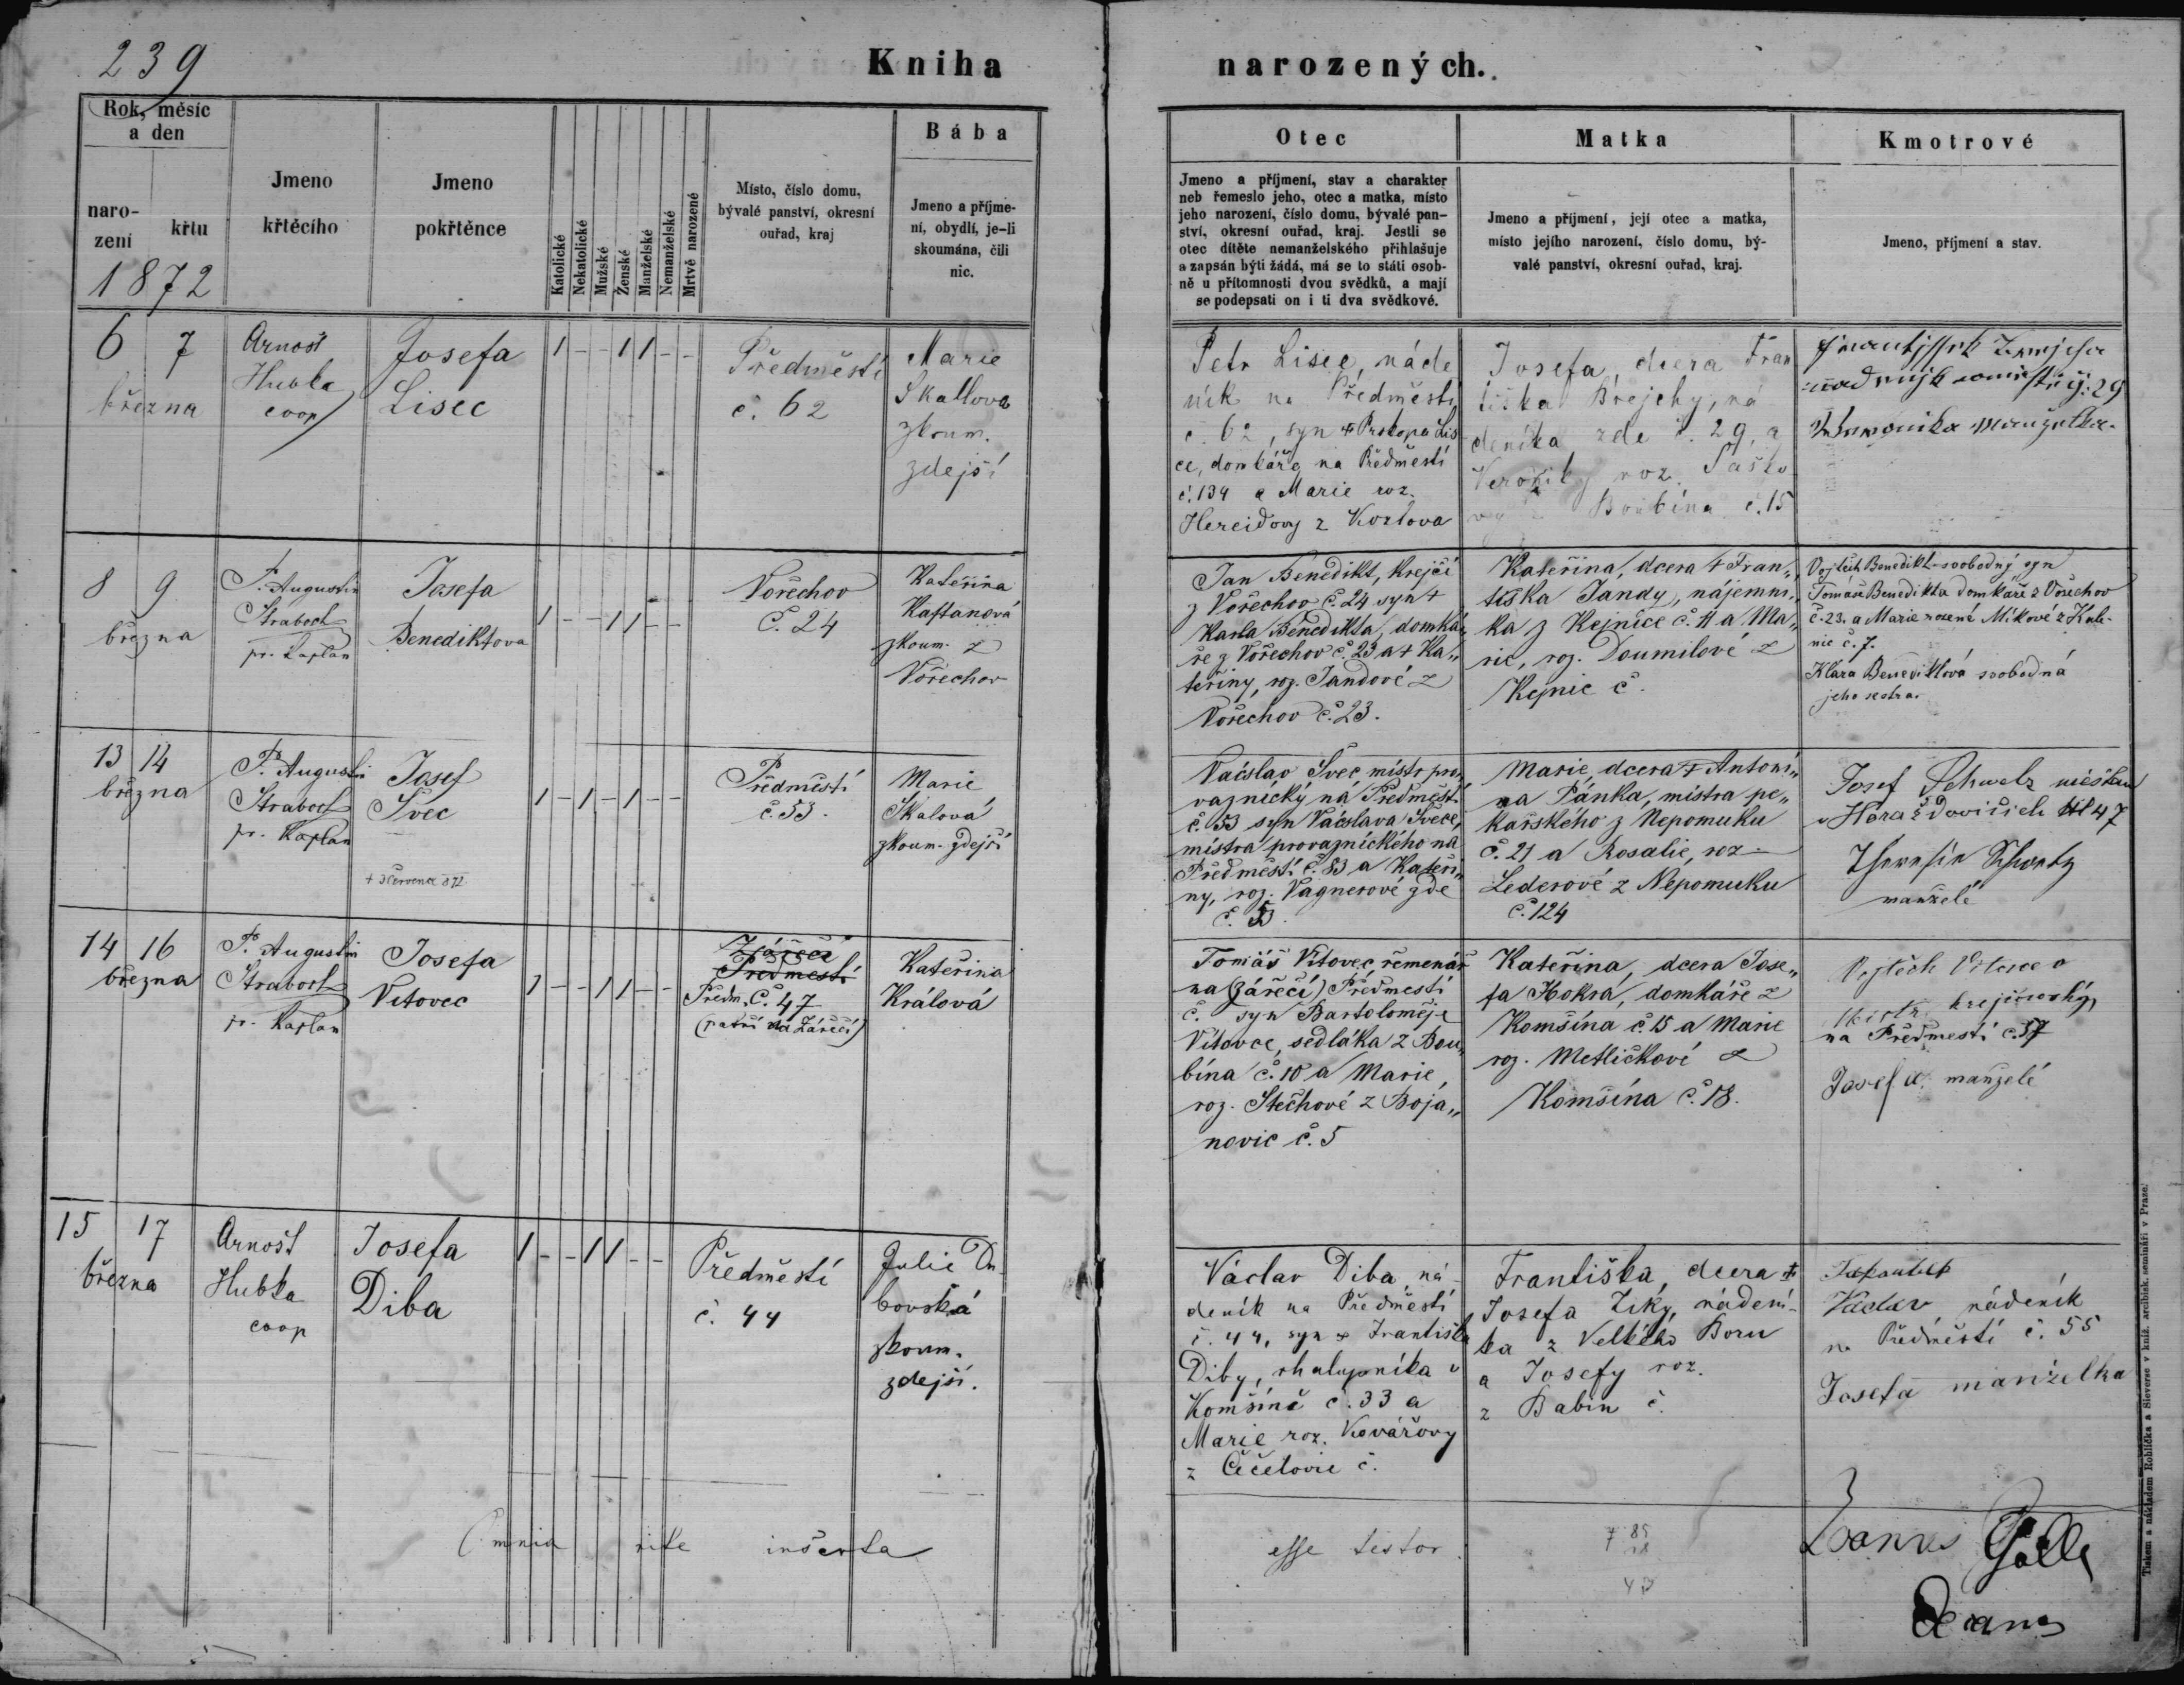 239
Kniha narozených.
Rok, měsíc
a den
naro-
zení
křtu
1872
Jmeno
křtěcího
Jmeno
pokřtěnce
Katolické
Nekatolické
Mužské
Ženské
Manželské
Nemanželské
Mrtvě narozené
Místo, číslo domu,
bývalé panství, okresní
ouřad, kraj
Bába
Jmeno a příjme-
ní, obydlí, je-li
skoumána, čili
nic.
Otec
Jmeno a příjmení, stav a charakter
neb řemeslo jeho, otec a matka, místo
jeho narození, číslo domu, bývalé pan-
ství, okresní ouřad, kraj. Jestli se
otec dítěte nemanželského přihlašuje
a zapsán býti žádá, má se to státi osob-
ně u přítomnosti dvou svědků, a mají
se podepsati on i ti dva svědkové.
Matka
Jmeno a příjmení, její otec a matka,
místo jejího narození, číslo domu, bý-
valé panství, okresní ouřad, kraj.
Kmotrové
Jmeno, příjmení a stav.
6 7
března
Arnošt
Hubka
coop
Josefa
Lisec
1 - - 1 1 - -
Předměstí
č. 62
Marie
Skallova
zkoum.
zdejší
Petr Lisec, náde
ník na Předměstí
č. 62, syn + Prokopa Lis
ce, domkáře na Předměstí
č. 134 a Marie roz.
z Kozlova
Josefa, dcera Fran
tiška Brejchy, ná
deníka zde č. 29, a
Veroniky roz. Paško
vy z Boubína č. 15
č. 29
manželka
8 9
března
P. Augustin
Straboch
pr. kaplan
Josefa
Benediktova
1 - - 1 1 - -
Vořechov
č. 24
Kateřina
Kaftanová
zkoum. z
Vořechov
Jan Benedikt, krejčí
z Vořechov č. 24 syn +
Karla Benedikta, domká„
ře z Vořechov č. 23 a + Ka„
teřiny, roz. Jandové z
Vořechov č. 23.
Kateřina, dcera + Fran„
tiška Jandy, nájemní„
ka z Kejnice č. 11 a Ma„
rie, roz. Doumilové z
Kejnic č.
Vojtěch Benedikt svobodný syn
Tomáše Benedikta domkáře z Vořechov
č. 23. a Marie rozené Míkové z Kale-
nic č. 7.
Klára Benediktová svobodná
jeho sestra.
13 14
března
P. Augustin
Straboch
pr. kaplan
Josef
Švec
+ 3 července 872
1 - 1 - 1 - -
Předměstí
č. 53.
Marie
Skalová
zkoum. zdejší
Václav Švec, mistr pro„
vaznický na Předměstí
č. 53 syn Václava Švece,
mistra provaznického na
Předměstí č. 53 a Kateři„
ny, roz. Vagnerové zde
č. 53.
Marie, dcera + Antoní„
na Pánka, mistra pe„
kařského z Nepomuku
č. 21 a Rosalie, roz.
Lederové z Nepomuku
č. 124
Josef Schwelz měšťan
v Horažďovicích 47
manželé
14 16
března
P. Augustin
Straboch
pr. kaplan
Josefa
Vitovec
1 - - 1 1 - -
Zářečí
Předměstí
Předm. č. 47
(patří na Zářečí)
Kateřina
Králová
Tomáš Vitovec, řemenář
na (Zářečí) Předměstí
č. syn Bartoloměje
Vitovce, sedláka z Bou„
bína č. 10 a Marie,
roz. Stechové z Boja„
novic č. 5
Kateřina, dcera Jose„
fa Hokra, domkáře z
Komšína č. 15 a Marie
roz. Metličkové z
Komšína č. 18.
Vojtěch Vitovec
mistr krejčovský
na Předměstí č. 37
Josefa manželé
15 17
března
Arnošt
Hubka
coop
Josefa
Diba
1 - - 1 1 - -
Předměstí
č. 44
Julie Du-
bovská
zkoum.
zdejší.
Václav Diba, ná-
deník na Předměstí
č. 44, syn + Františka
Diby, chalupníka v
Komšíně č. 33 a
Marie roz. Kovářovy
z Čečelovic č.
Františka, dcera +
Josefa Ziky, nádení-
ka z Velkého Boru
a Josefy roz.
z Babín č.
Václav nádeník
na Předměstí č. 55
Josefa manželka
Omnia rite inserta esse testor.
7 85
18
47
Joannes Pollk
Decanus
Tiskem a nákladem Rohlíčka a Sieverse v kníž. arcibisk. semináři v Praze.